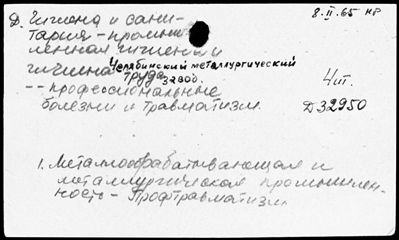 Д. Гигиена и сани-
тария - промыш-
ленная гигиена и
гигиена труда
Челябинский металлургический
завод.
-- профессиональные
болезни и травматизм
8.II.65 НР
4 ит.
Д32950
1. Металлообрабатывающая и
металлургическая промышлен-
ность - Профтравматизм